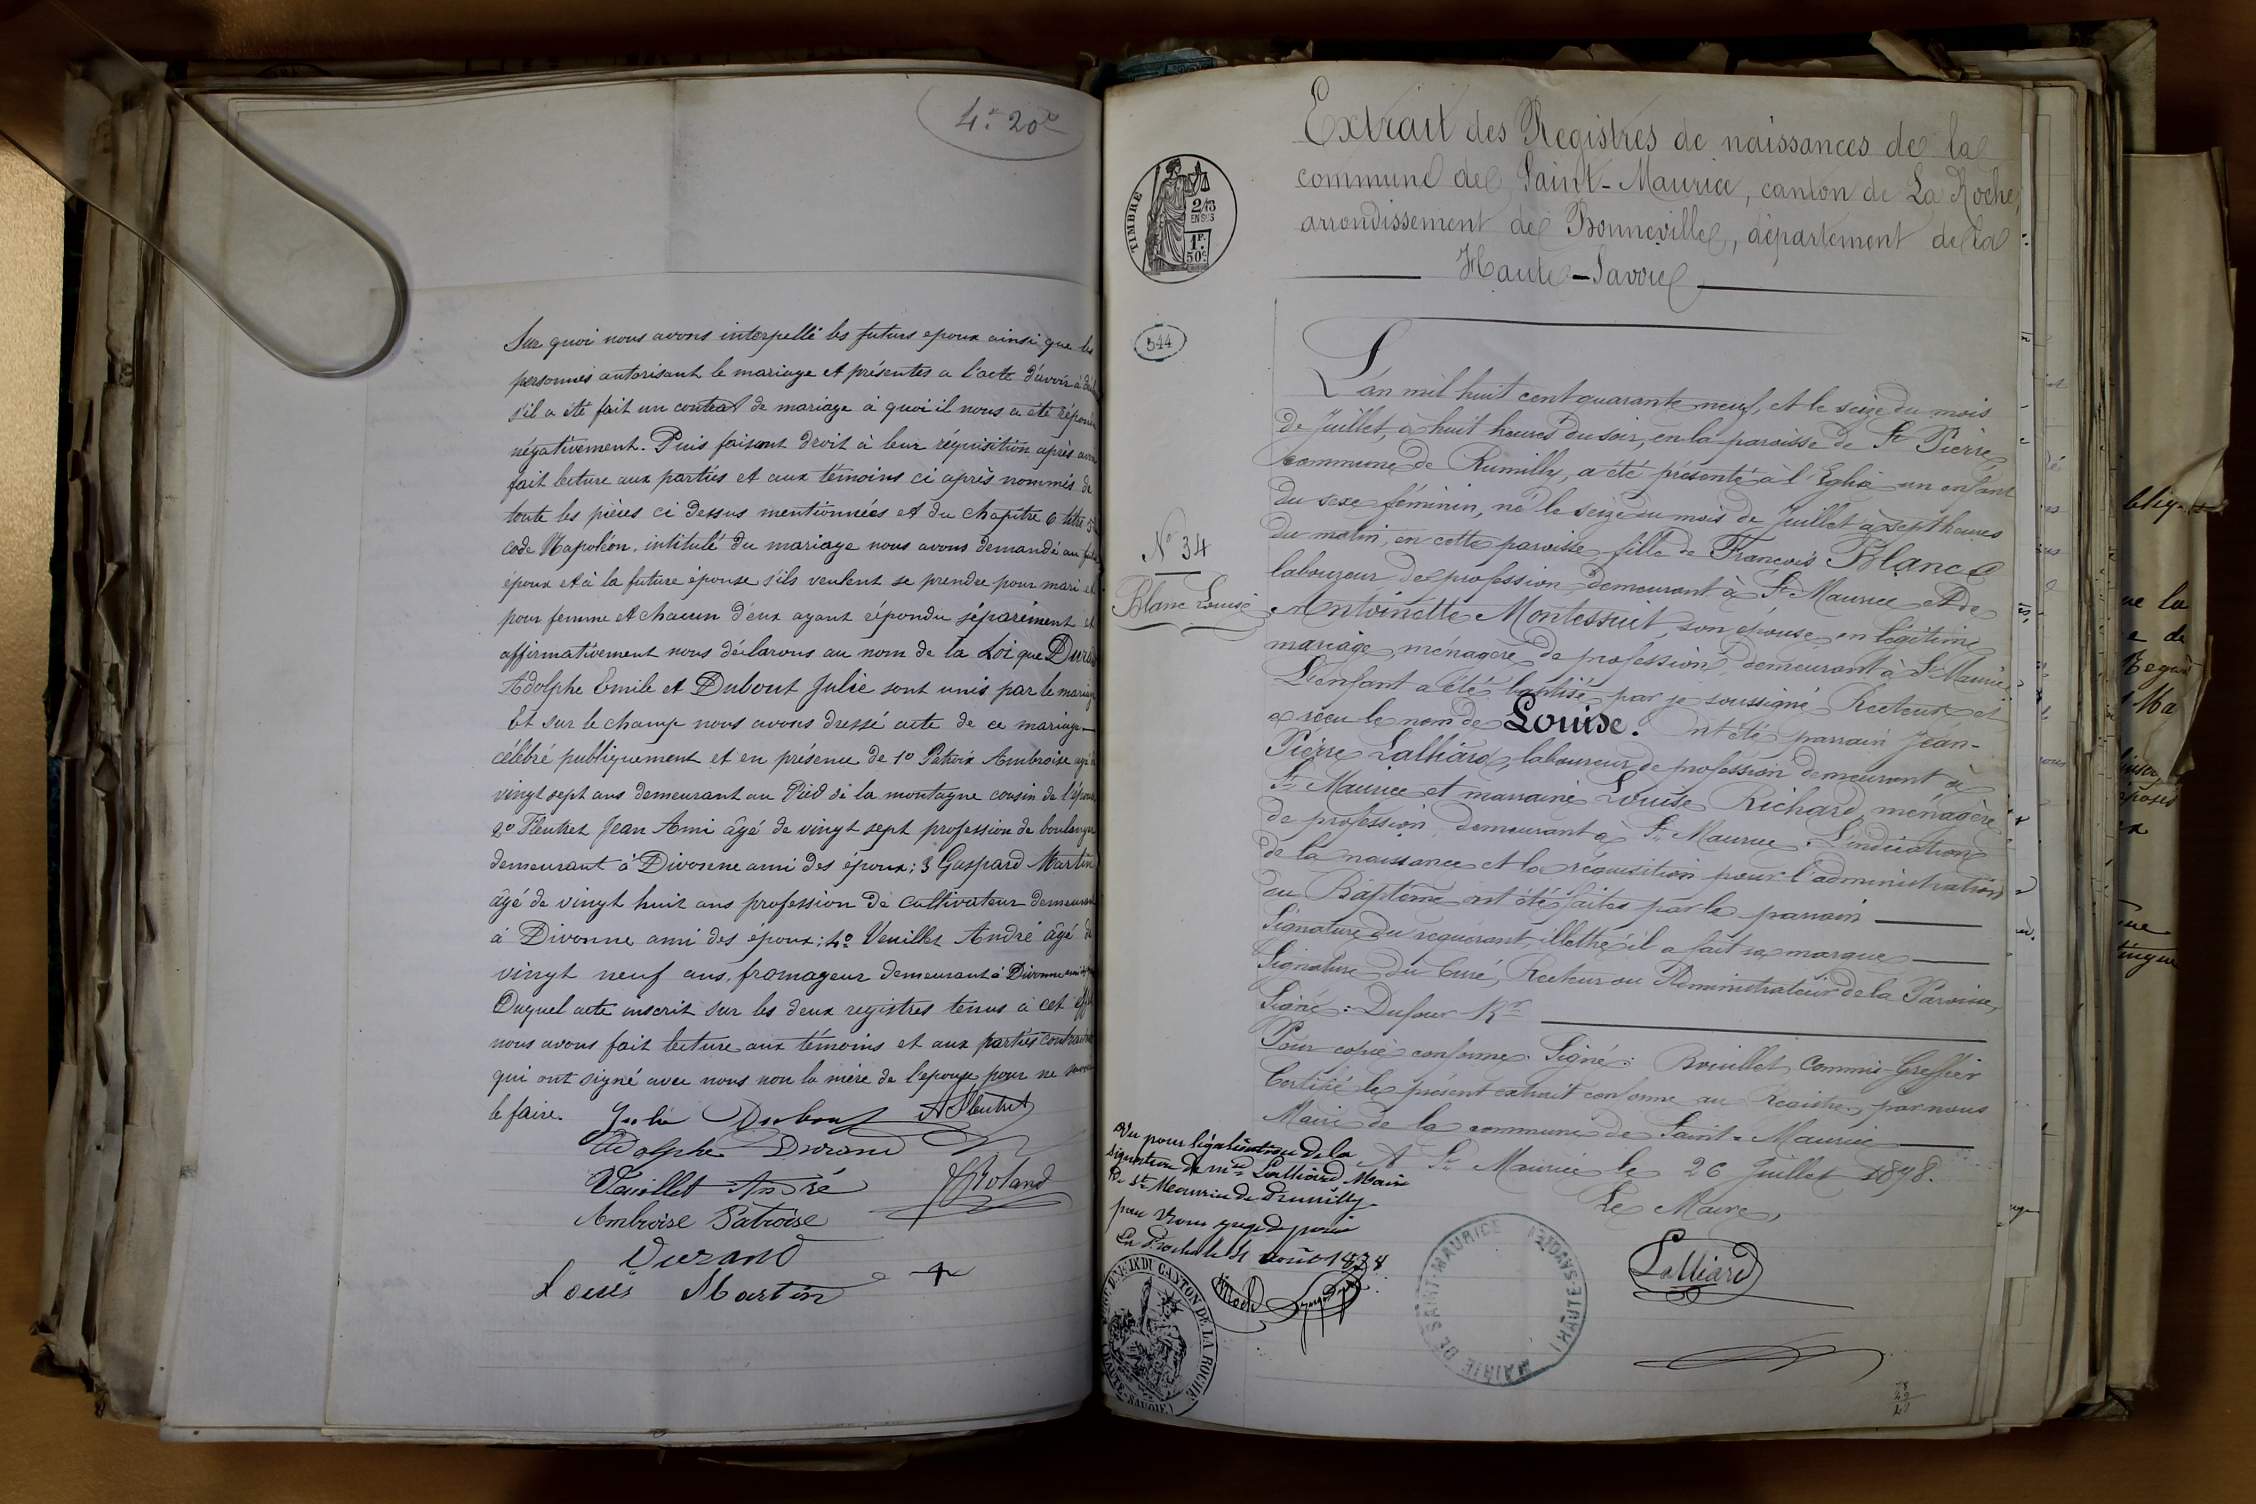 4f 20c
Sur quoi nous avons interpellé les futurs epoux ainsi que les
personnes autorisant le mariage et présentes a l'acte d'avoir à
s'il a été fait un contrat de mariage à quoi il nous a été répondu
négativement. Puis faisant droit à leur réquisition après avoir
fait lecture aux parties et aux témoins ci après nommés de
toute les pièces ci dessus mentionnées et du chapitre 6 titre 5
code Napoléon, intitulé du mariage nous avons demandé au futur
époux et à la future épouse s'ils veulent se prendre pour mari et
pour femme et chacun d'eux ayant répondu séparément et
affirmativement nous déclarons au nom de la Loi que Durand
Adolphe Emile et Dubout Julie sont unis par le mariage
Et sur le champ nous avons dressé acte de ce mariage
célébré publiquement et en présence de 1o Patroix Ambroise agé de
vingt sept ans demeurant au Pied de la montagne cousin de l'épouse
2o Fleutret Jean Ami âgé de vingt sept profession de boulanger
demeurant à Divonne ami des époux; 3 Gaspard Martin
âgé de vingt huit ans profession de cultivateur demeurant
à Divonne ami des époux; 4o Veuillet André âgé de
vingt neuf ans, fromageur demeurant à Divonne
Duquel acte inscrit sur les deux registres tenus à cet effet
nous avons fait lecture aux témoins et aux parties contractantes
qui ont signé avec nous non la mère de l'epouse pour ne savoir
le faire.
Julie Dubout AFleutret
Adolphe Durand
Vauillet André JRoland
Ambroise Patroise
Durand
Louis Martin
TIMBRE
2/10
EN SUS
1F.
50c
Extrait des Registres de naissances de la
commune de Saint-Maurice, canton de La Roche,
arrondissement de Bonneville, département de la
Haute-Savoie
544
L'an mil huit cent quarante neuf, et le seize du mois
de Juillet, à huit heures du soir, en la paroisse de St Pierre
commune de Rumilly, a été présenté à l'Eglise un enfant
du sexe féminin, né le seize du mois de Juillet à sept heures
du matin, en cette paroisse fille de François Blanc
laboureur de profession demeurant à St Maurice et de
No 34
Blanc Louise
Antoinette Montessuit, son épouse en légitime
mariage, ménagère de profession, demeurant à St Maurice
L'enfant a été baptisé par je soussigné Recteur et
a reçu le nom de Louise. Ont été parrain Jean-
Pierre Lalliard, laboureur de profession demeurant à
St Maurice et marraine Louise Richard, ménagère
de profession demeurant à St Maurice. L'indication
de la naissance et la réquisition pour l'administration
du Baptême ont été faites par le parrain
Signature du requérant, illethé il a fait sa marque
Signature du Curé, Recteur ou Administrateur de la Paroisse,
Signé: Dufour Rr
Pour copie conforme. Signé: Bouillet, Commis-Greffier
Certifié le présent extrait conforme au registre, par nous
Maire de la commune de Saint-Maurice
A St Maurice le 26 Juillet 1878.
Le Maire,
Lalliard
Vu pour légalisation de la
signature de Mr Lalliard Maire
de St Maurice de Rumilly
par nous juge de paix
La Roche le 1 août 1878
MAIRIE DE SAINT-MAURICE (HAUTE-SAVOIE)
DU CANTON DE LA ROCHE (HAUTE-SAVOIE)